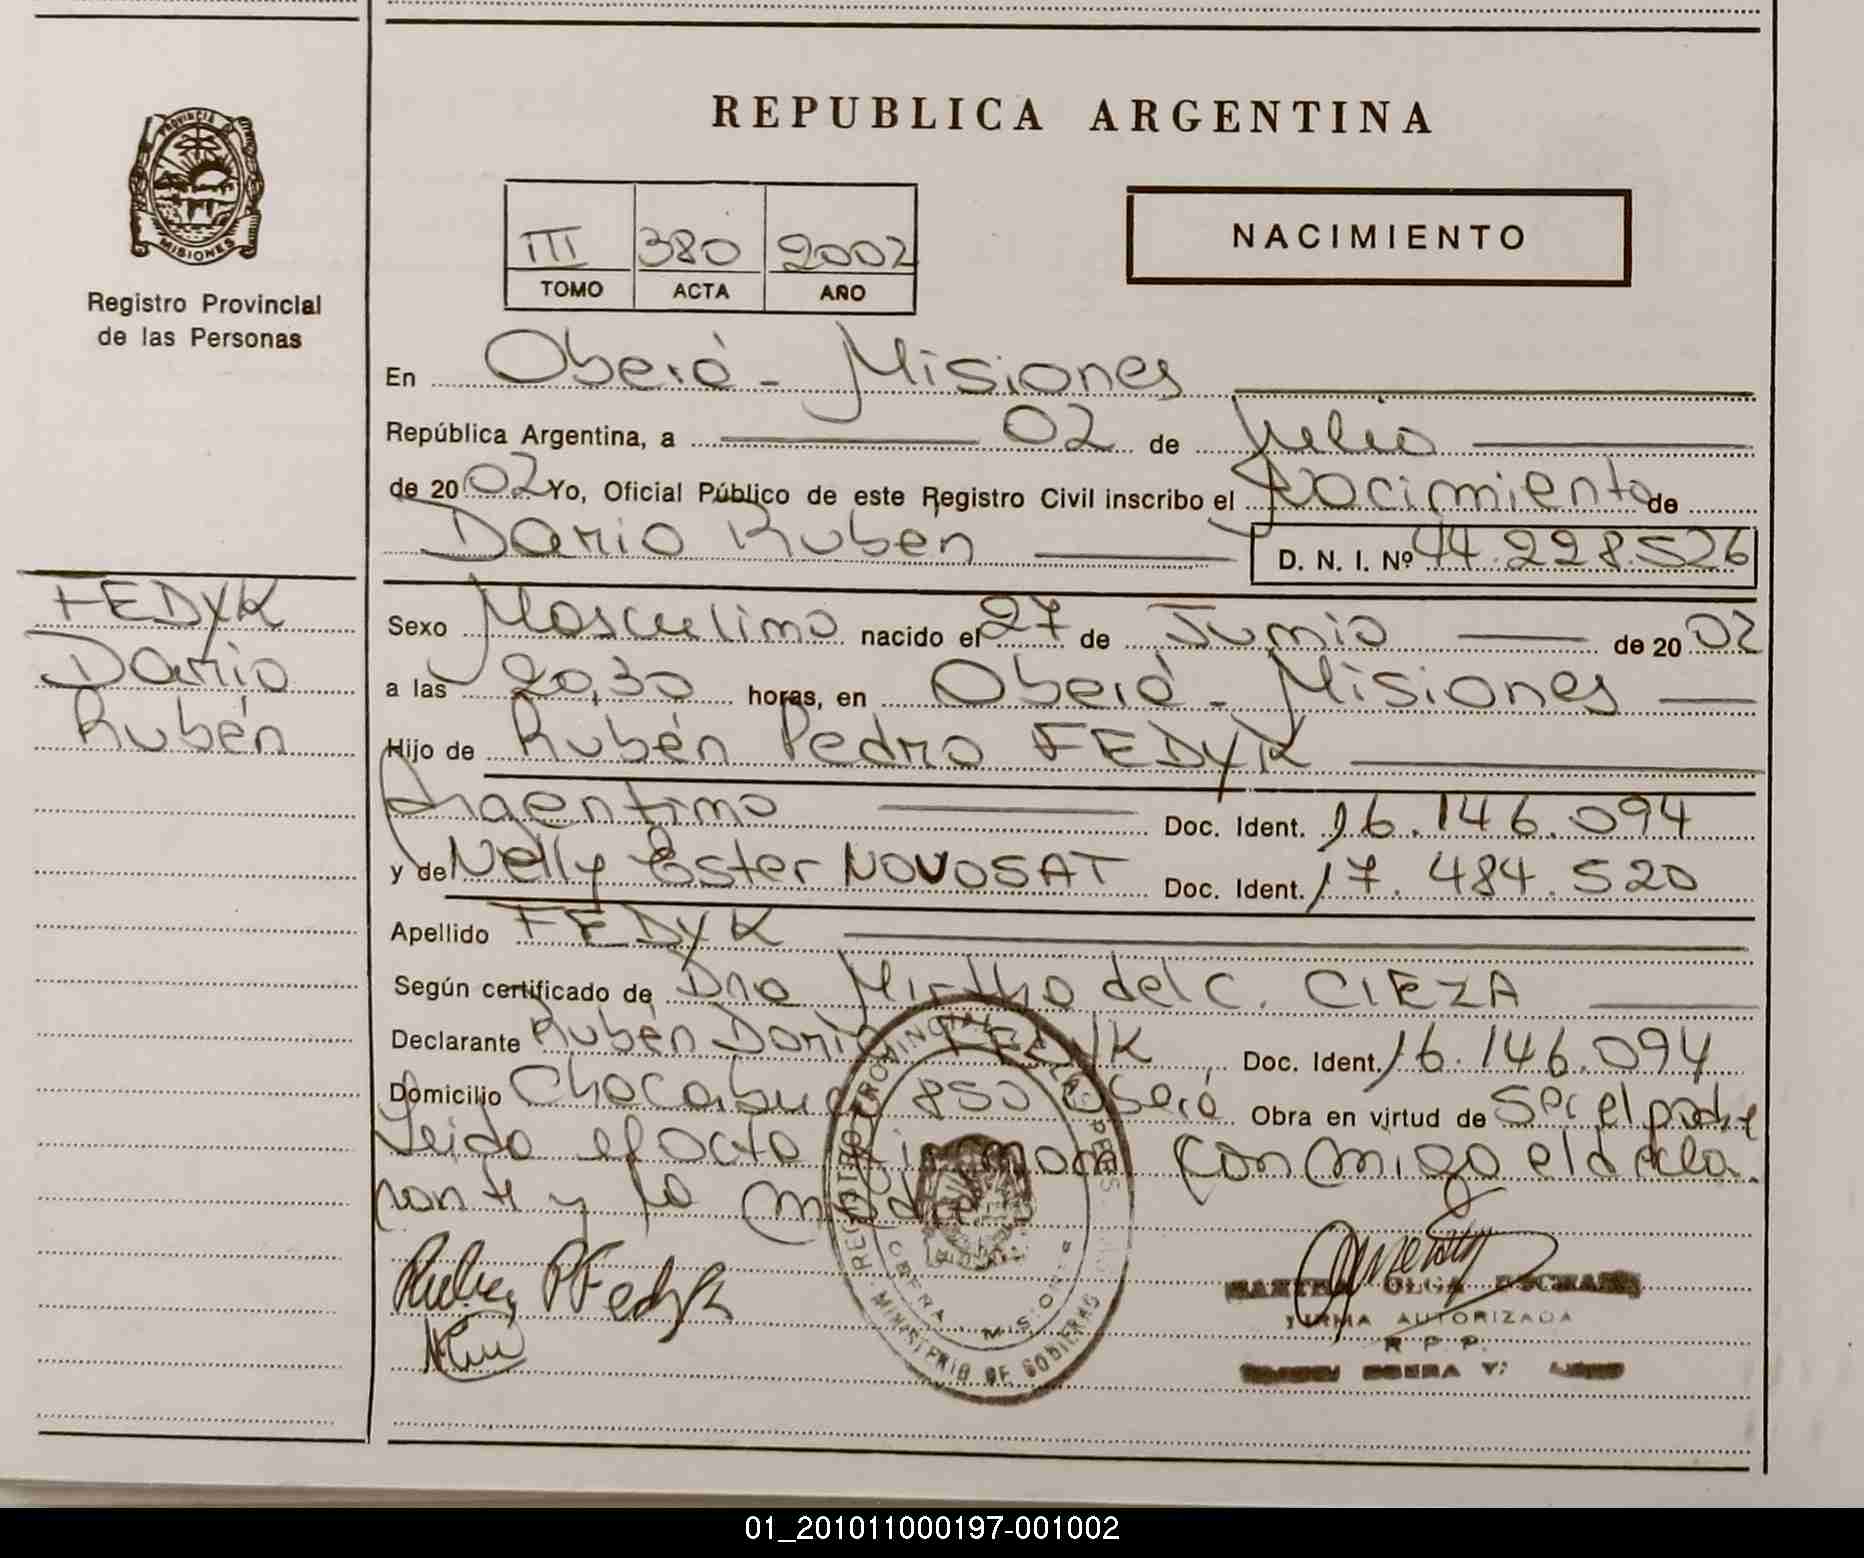 REPUBLICA ARGENTINA
PROVINCIA DE
MISIONES
Registro Provincial
de las Personas
III 380 2002
TOMO ACTA AÑO
NACIMIENTO
En Oberá - Misiones
República Argentina, a 02 de Julio
de 2002 Yo, Oficial Público de este Registro Civil inscribo el Nacimiento de
Dario Ruben D. N. I. Nº 44.228.526
FEDYK
Dario
Rubén
Sexo Masculino nacido el 27 de Junio de 2002
a las 20,30 horas, en Oberá - Misiones
Hijo de Rubén Pedro FEDYK
Argentino Doc. Ident. 16.146.094
y de Nelly Ester NOVOSAT Doc. Ident. 17.484.520
Apellido FEDYK
Según certificado de Dra Mirtha del C. CIEZA
Declarante Rubén Dario FEDYK Doc. Ident. 16.146.094
Domicilio Chacabuco 850 Oberá Obra en virtud de Ser el padre
Leida el acta firman conmigo el decla
rante y la madre
Ruben P Fedyk
REGISTRO PROVINCIAL DE LAS PERS
OBERA MISIONES
MINISTERIO DE GOBIERNO
OLGA
FIRMA AUTORIZADA
R P P
OBERA
01_201011000197-001002